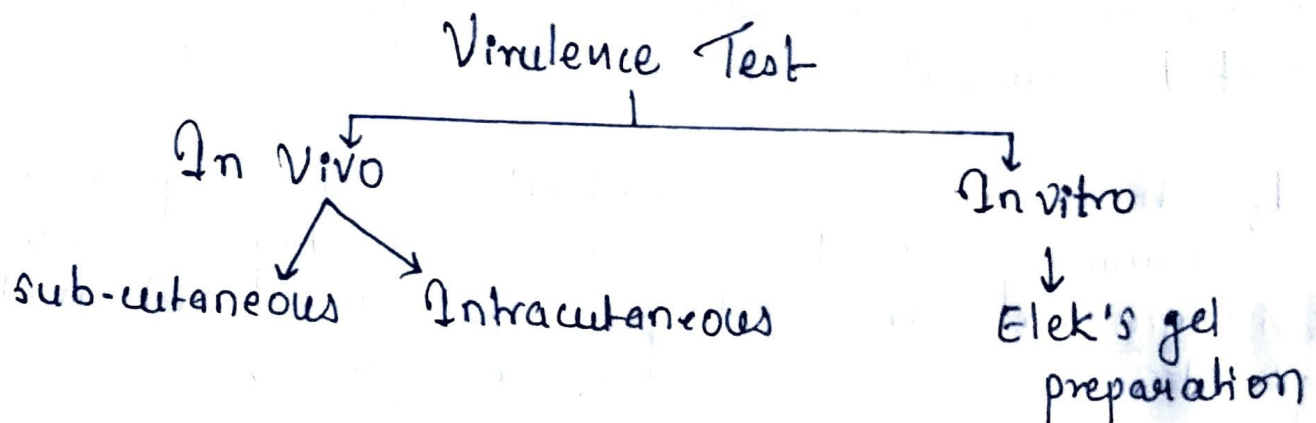 Virulence Test
In Vivo
In vitro
sub-cutaneous
Intracutaneous
Elek's gel
preparation